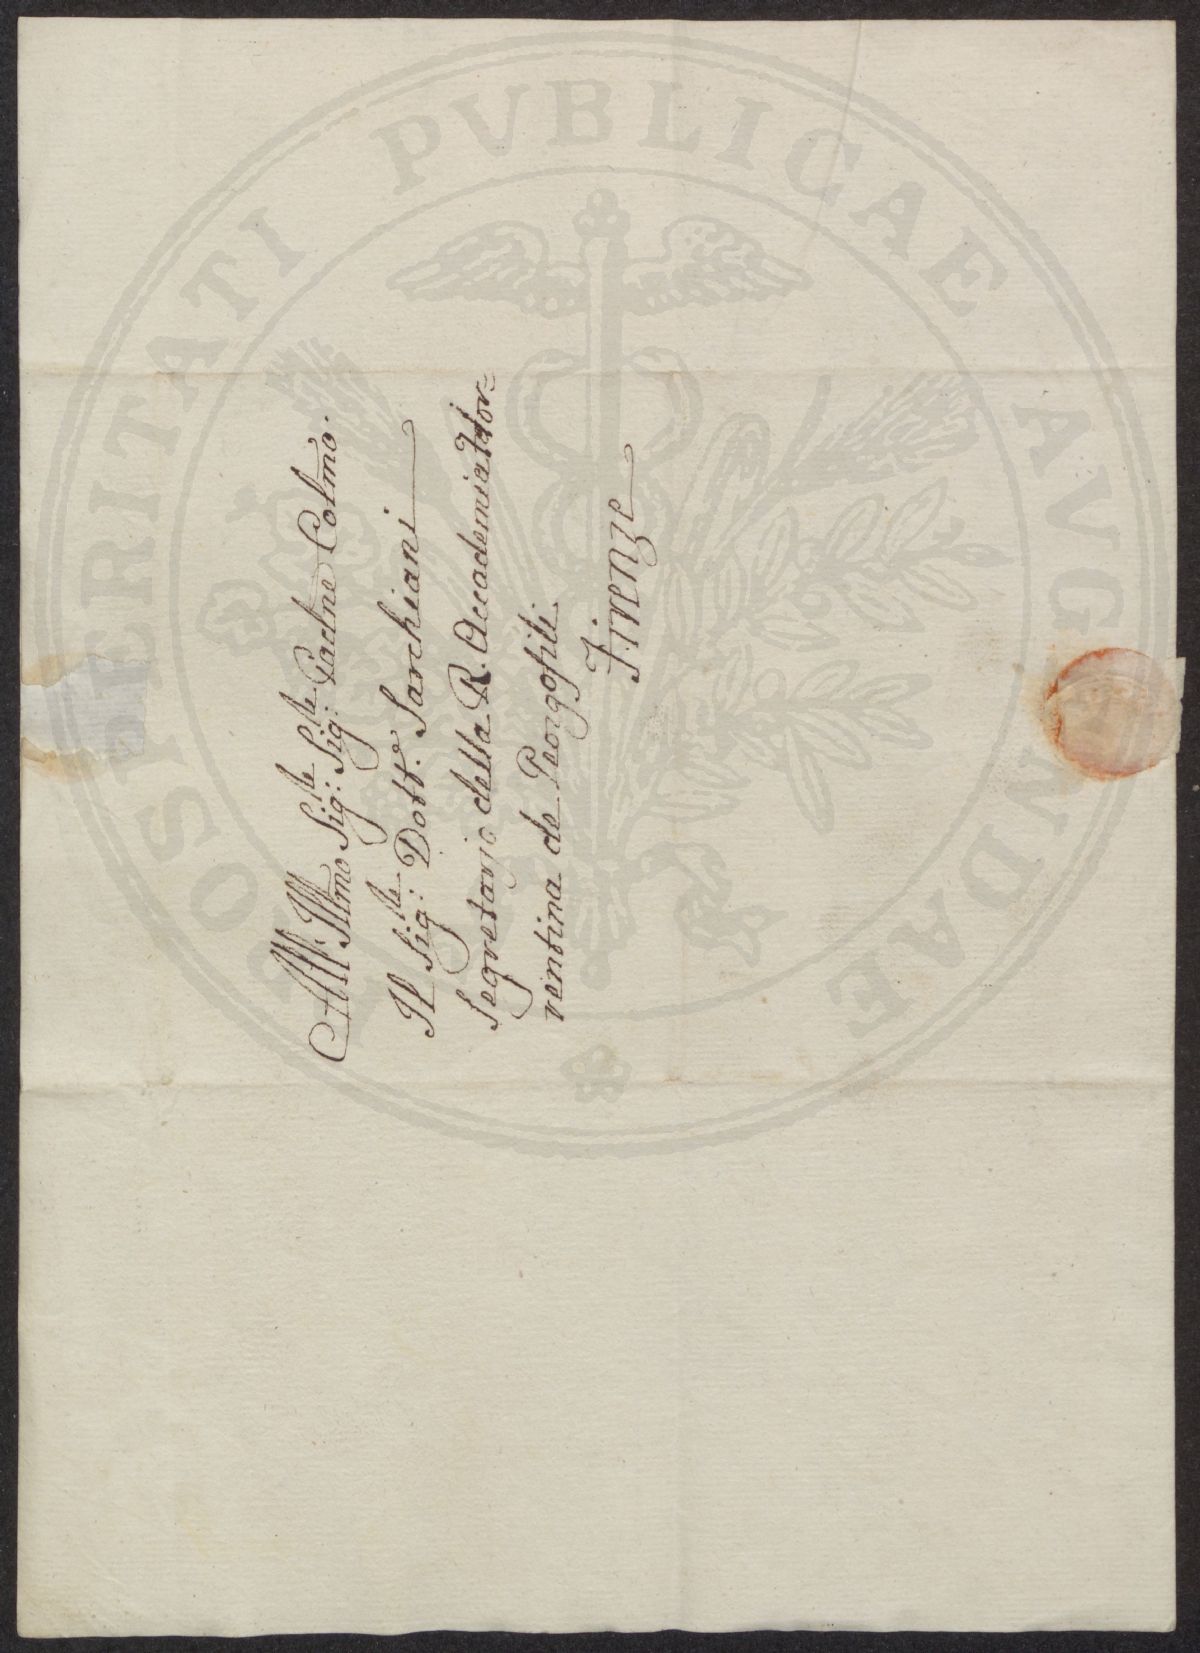 All' Illmo Sig:re Sig:re Padne Colmo.
Il Sig:re Dott.e Sarchiani
Segretario della R. Accademia Fior=
rentina de Georgofili
Firenze
PROSPERITATI PUBLICAE AVGENDAE